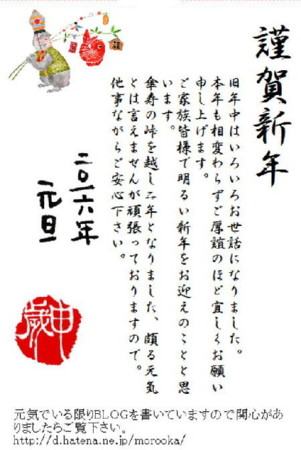 謹賀新年
旧年中はいろいろお世話になりました。
本年も相変わらずご厚誼のほど宜しくお願い
申し上げます。
ご家族皆様で明るい新年をお迎えのことと思
います。
傘寿の峠を越し二年となりました、頗る元気
とは言えませんが頑張っておりますので。
他事ながらご安心下さい。
二〇一六年
元旦
申歳
元気でいる限りBLOGを書いていますので関心があ
りましたらご覧下さい。
http://d.hatena.ne.jp/morooka/